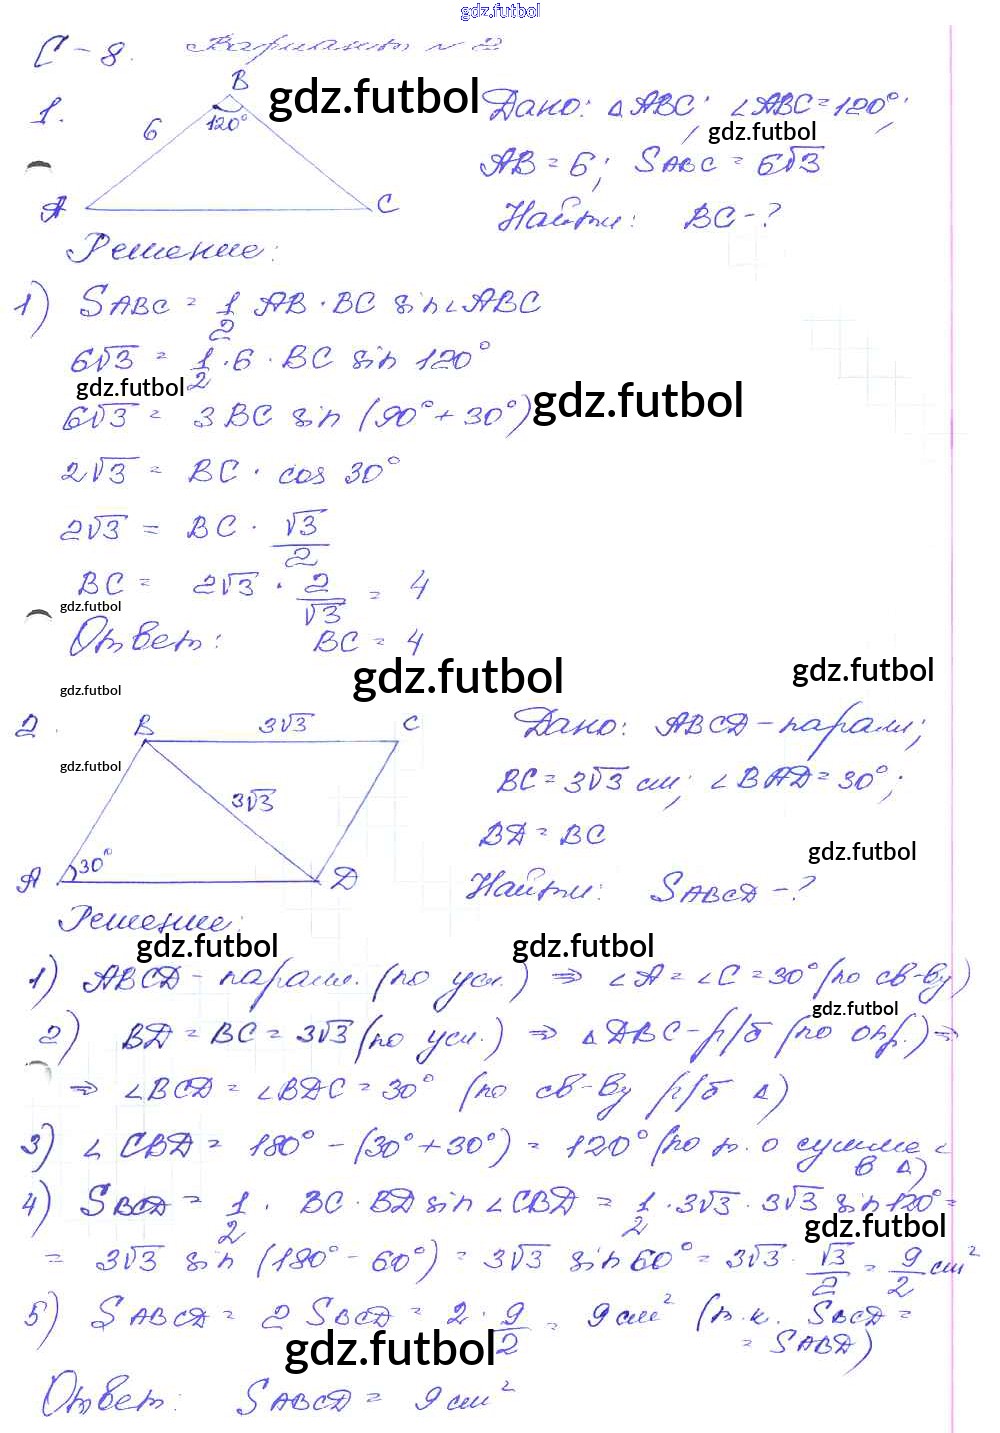 gdz.futbol
С-8. Вариант №2
1.
B
120°
6
A
C
gdz.futbol
Дано: △ABC; ∠ABC = 120°;
gdz.futbol
AB = 6; S ABC = 6√3
Найти: BC - ?
Решение:
1) S ABC = 1/2 AB · BC sin ∠ABC
6√3 = 1/2 · 6 · BC sin 120°
gdz.futbol
6√3 = 3 BC sin (90° + 30°)
gdz.futbol
2√3 = BC · cos 30°
2√3 = BC · √3/2
BC = 2√3 · 2/√3 = 4
gdz.futbol
Ответ: BC = 4
gdz.futbol
gdz.futbol
gdz.futbol
2.
B
3√3
C
3√3
30°
A
D
gdz.futbol
Дано: ABCD - парал.;
BC = 3√3 см; ∠BAD = 30°;
BD = BC
gdz.futbol
Найти: S ABCD - ?
Решение:
gdz.futbol
gdz.futbol
1) ABCD - паралл. (по усл.) ⇒ ∠A = ∠C = 30° (по св-ву)
gdz.futbol
2) BD = BC = 3√3 (по усл.) ⇒ △DBC - р/б (по опр.) ⇒
⇒ ∠BCD = ∠BDC = 30° (по св-ву р/б △)
3) ∠CBD = 180° - (30° + 30°) = 120° (по т. о сумме ∠
в △)
4) S BCD = 1/2 · BC · BD sin ∠CBD = 1/2 · 3√3 · 3√3 sin 120° =
gdz.futbol
= 3√3 sin (180° - 60°) = 3√3 sin 60° = 3√3 · √3/2 = 9/2 см²
5) S ABCD = 2 S BCD = 2 · 9/2 = 9 см² (т.к. S BCD =
= S ABD)
gdz.futbol
Ответ: S ABCD = 9 см²